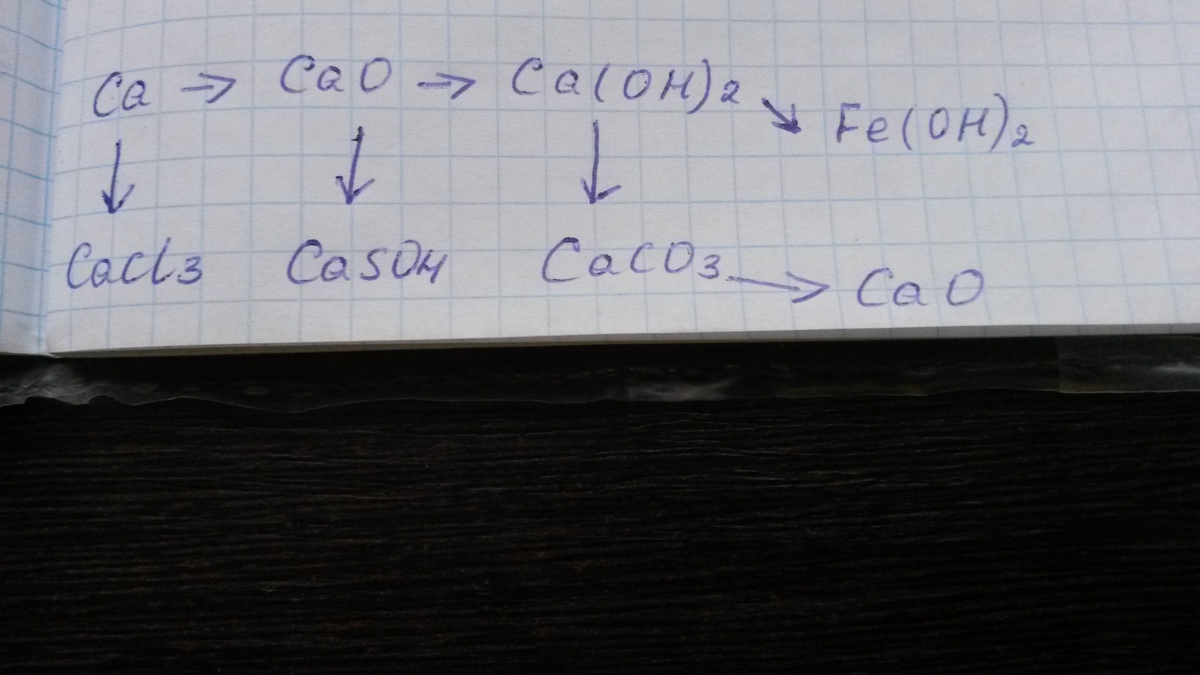 Ca → CaO → Ca(OH)₂ ↘ Fe(OH)₂
↓ ↓ ↓
CaCl₃ CaSO₄ CaCO₃ → CaO